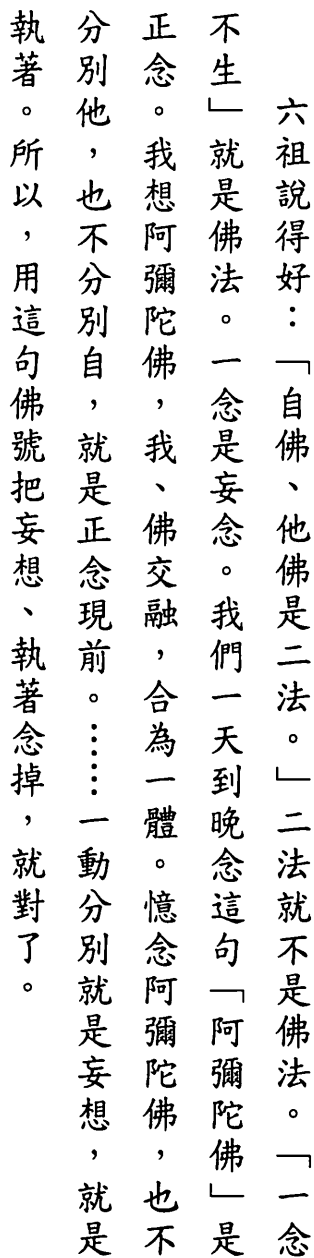 六祖說得好：「自佛、他佛是二法。」二法就不是佛法。「一念
不生」就是佛法。一念是妄念。我們一天到晚念這句「阿彌陀佛」是
正念。我想阿彌陀佛，我、佛交融，合為一體。憶念阿彌陀佛，也不
分別他，也不分別自，就是正念現前。……一動分別就是妄想，就是
執著。所以，用這句佛號把妄想、執著念掉，就對了。